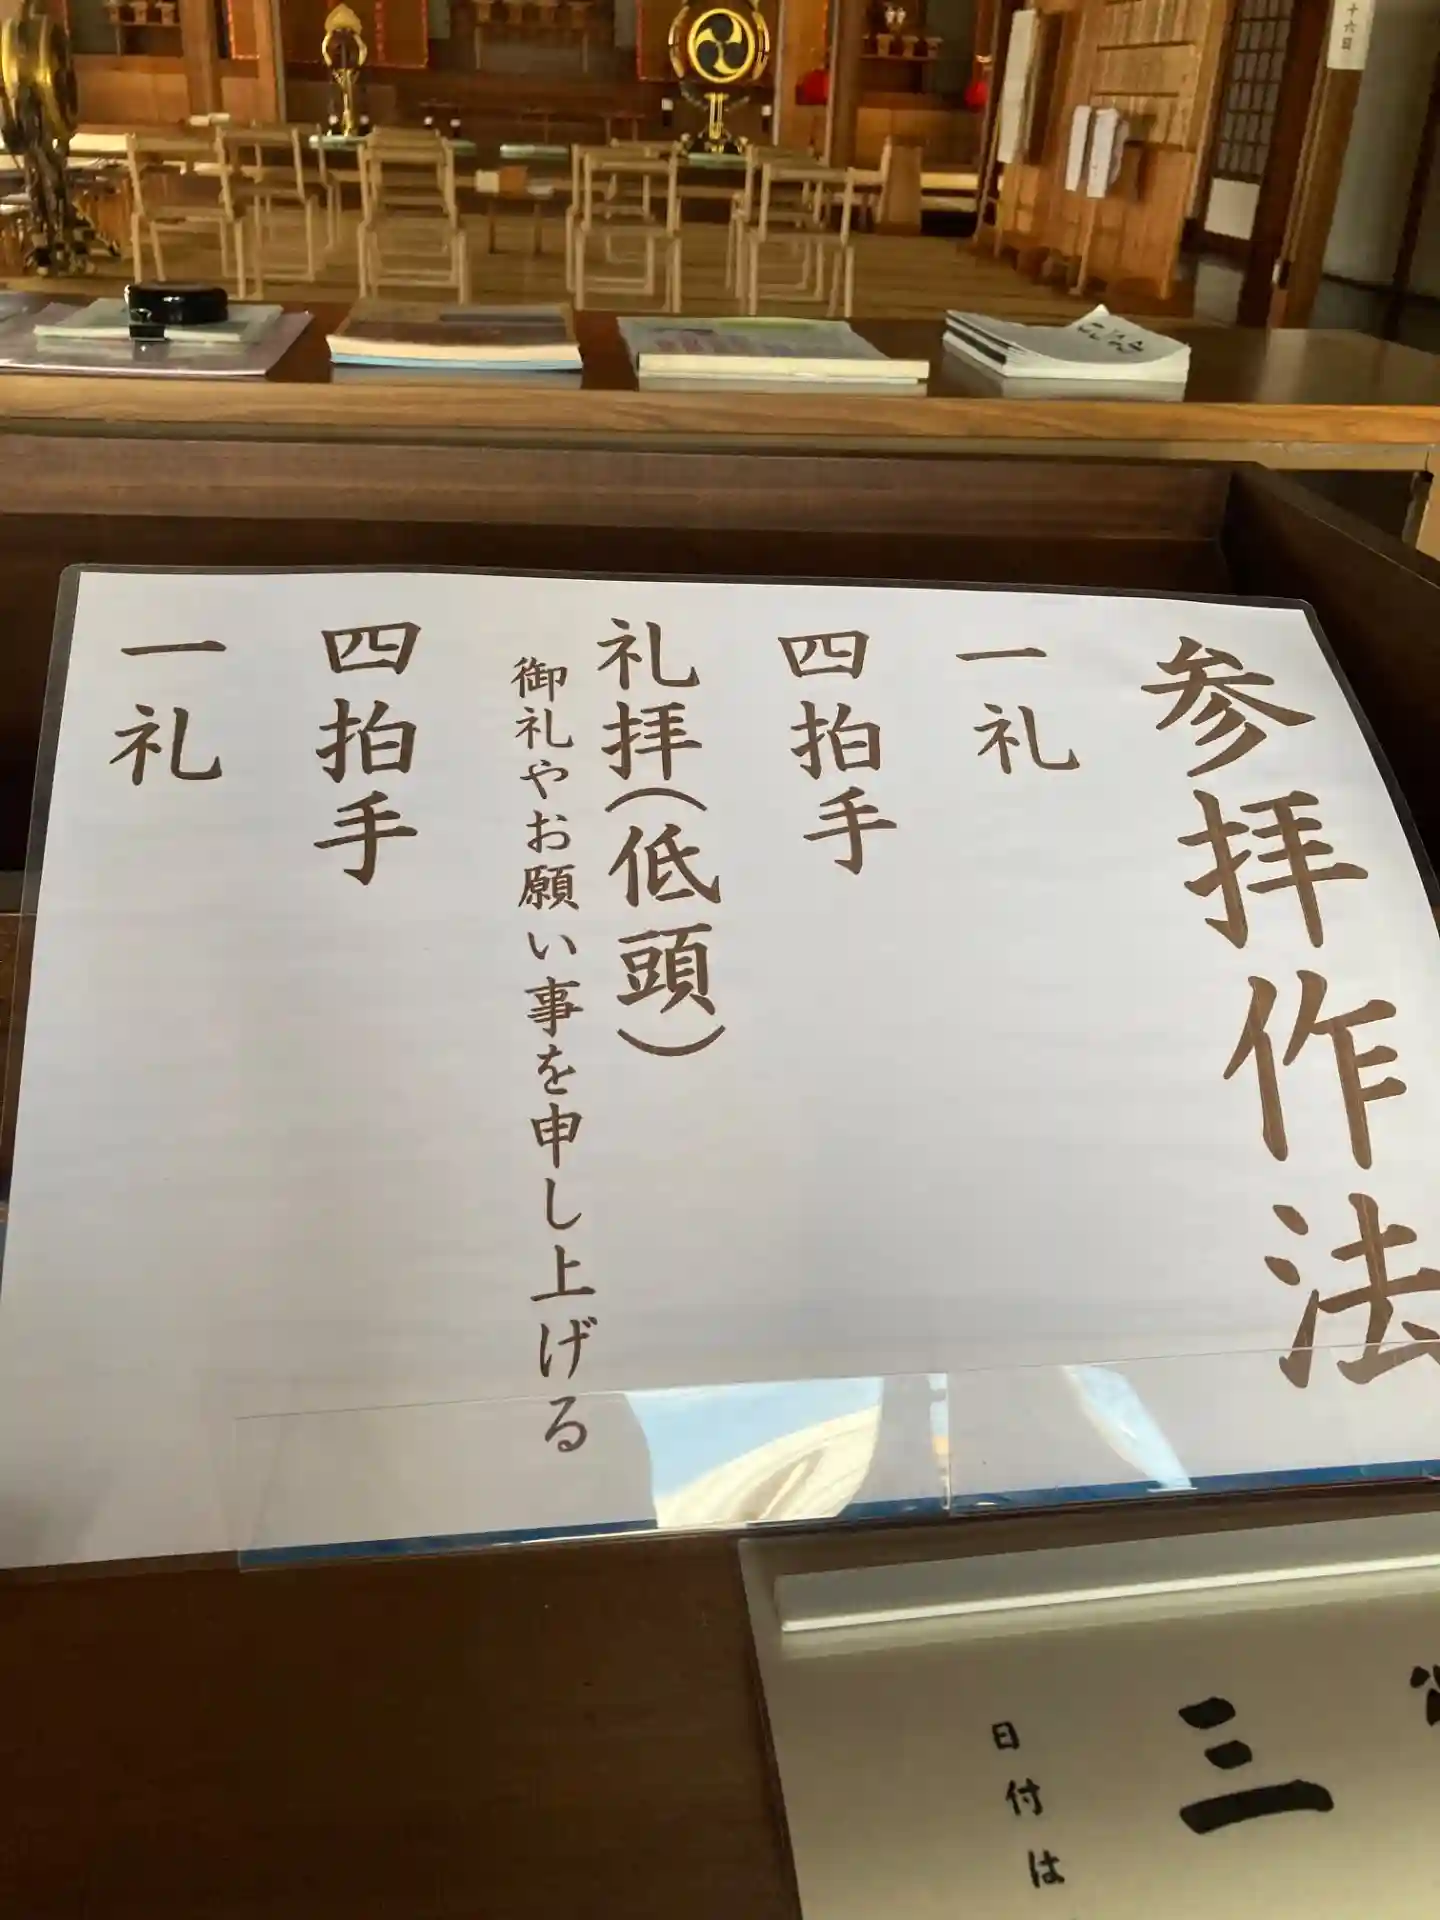 参拝作法
一礼
四拍手
礼拝(低頭)
御礼やお願い事を申し上げる
四拍手
一礼
三
日付は
十六日